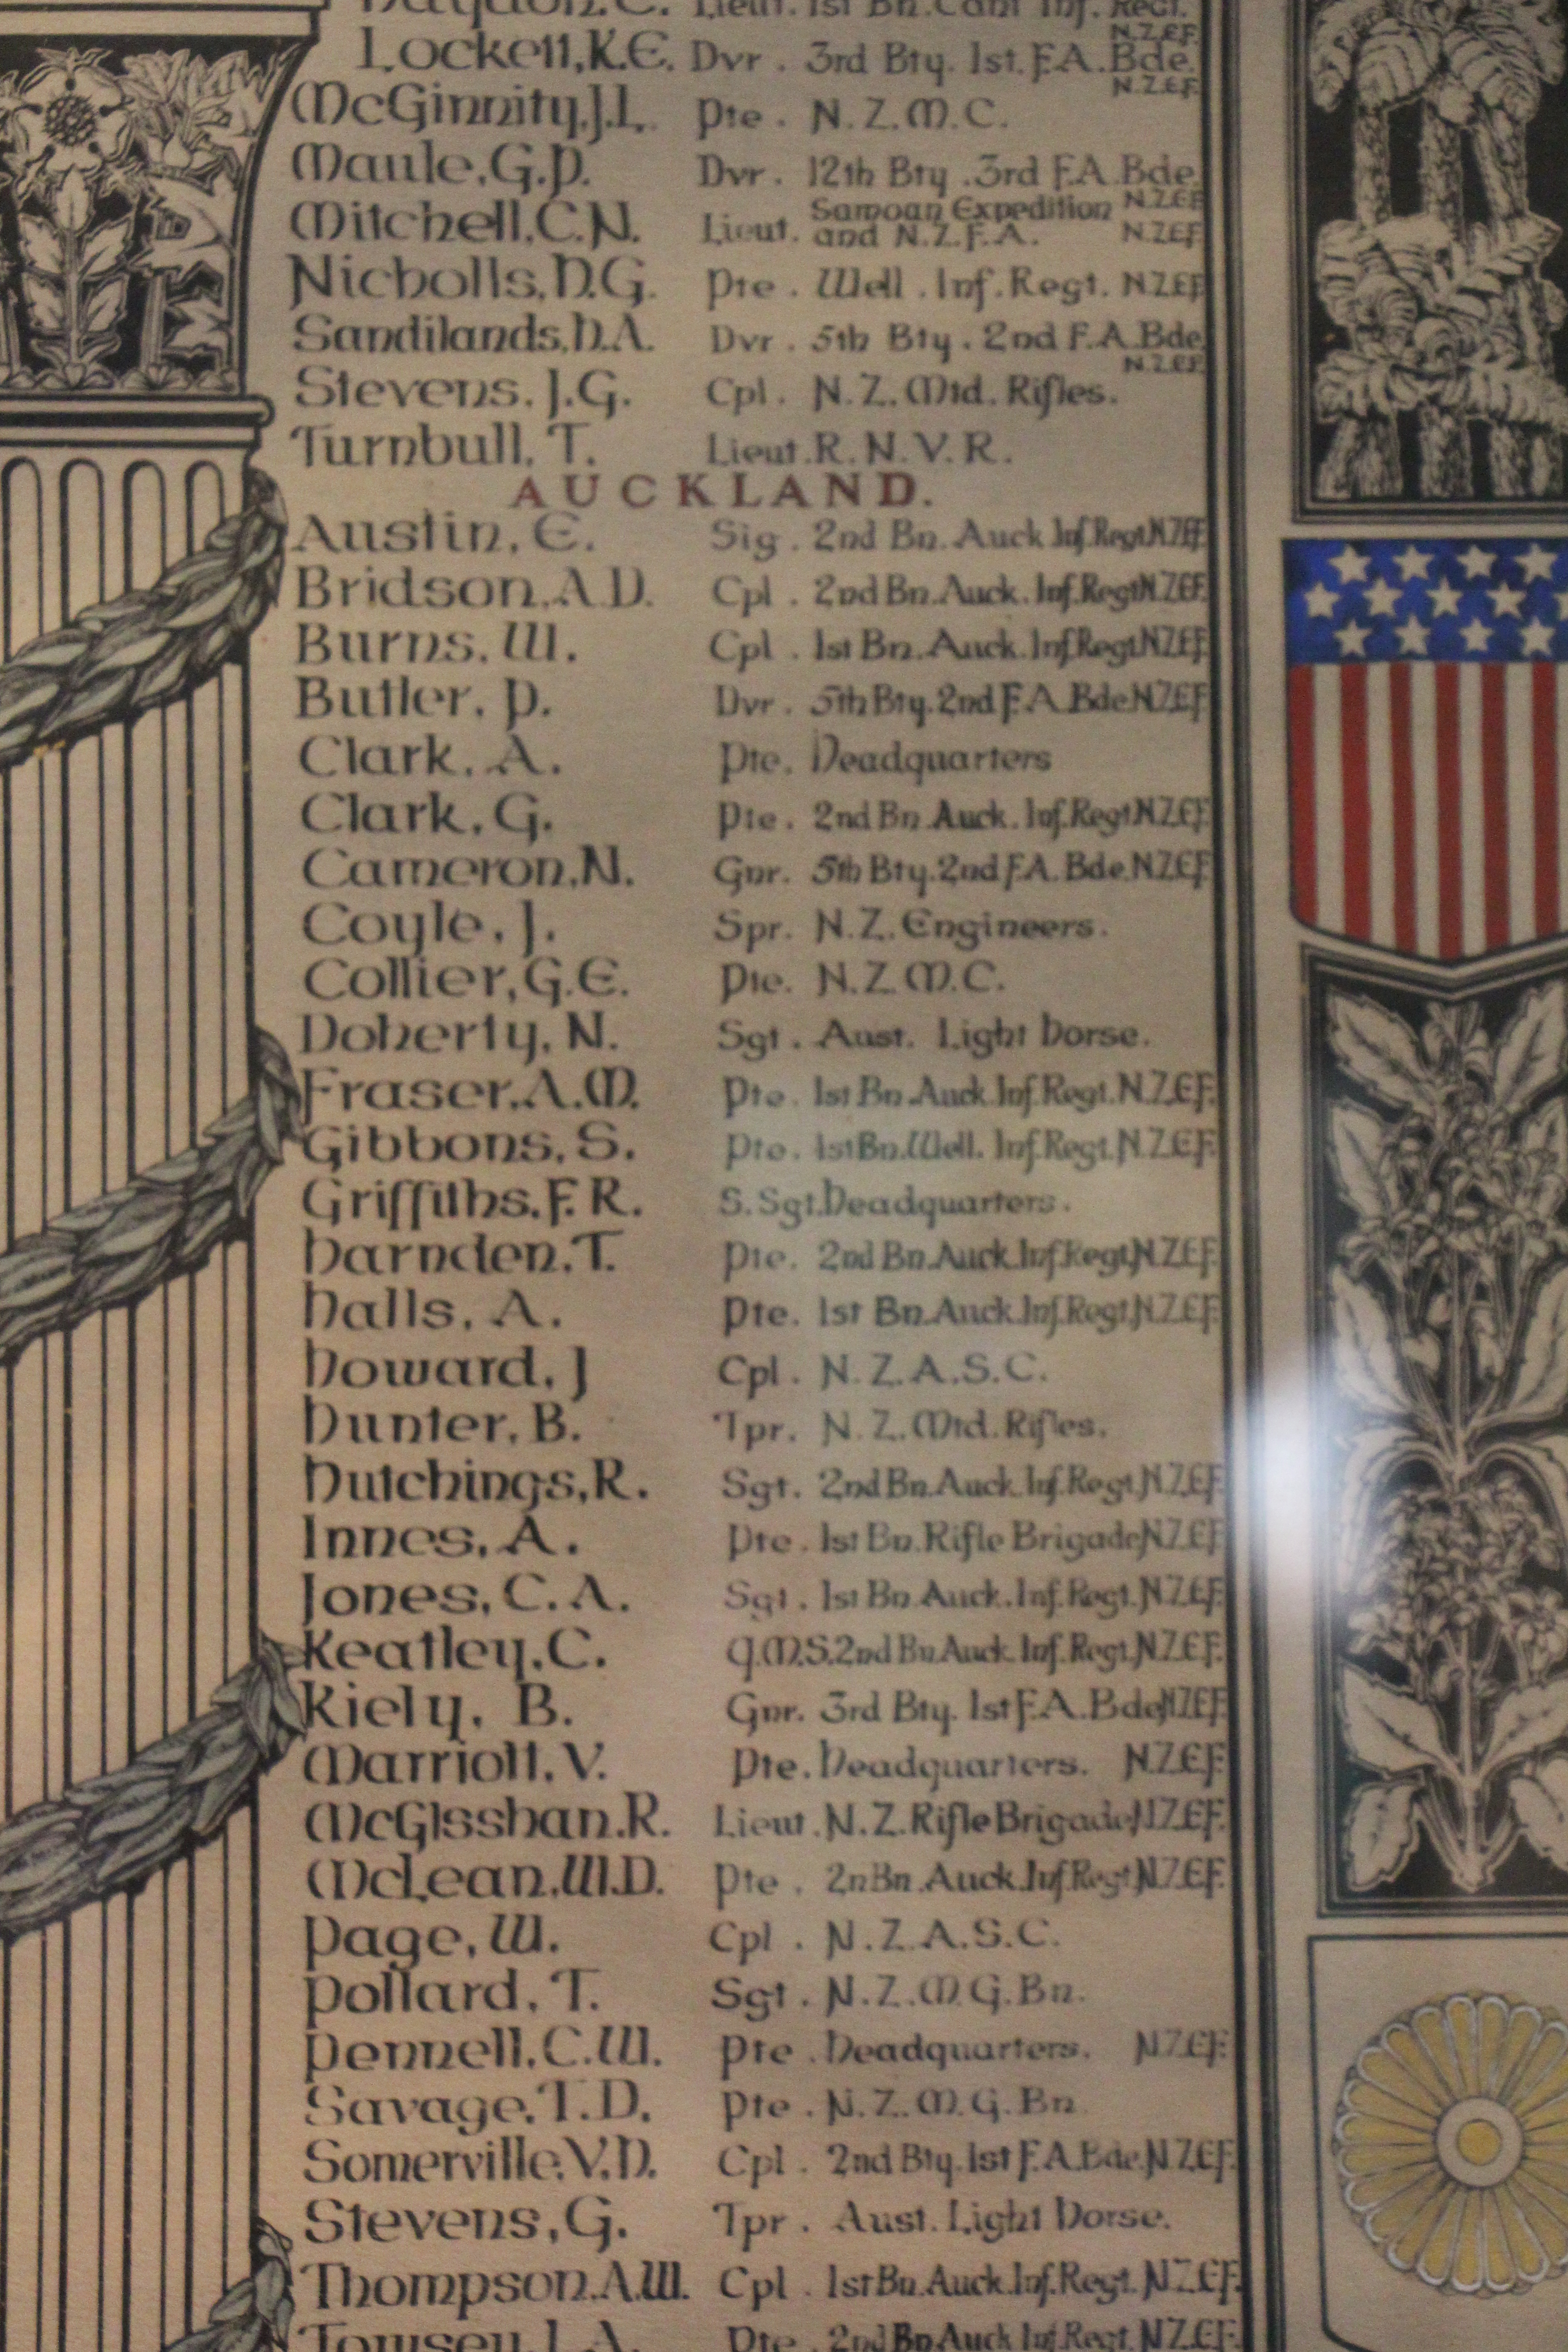 Lieut. 1st Bn. Cant Inf. Regt.
N.Z.E.F.
Lockett, K.E. Dvr. 3rd Bty. 1st. F.A. Bde.
N.Z.E.F.
McGinnity, J.L. Pte. N.Z.M.C.
Maule, G.P. Dvr. 12th Bty. 3rd F.A. Bde.
N.Z.E.F.
Mitchell, C.N. Lieut. Samoan Expedition
and N.Z.F.A. N.Z.E.F.
Nicholls, H.G. Pte. Well. Inf. Regt. N.Z.E.F.
Sandilands, H.A. Dvr. 5th Bty. 2nd F.A. Bde.
N.Z.E.F.
Stevens, J.G. Cpl. N.Z. Mtd. Rifles.
Turnbull, T. Lieut. R.N.V.R.
AUCKLAND.
Austin, E. Sig. 2nd Bn. Auck Inf. Regt N.Z.E.F.
Bridson, A.D. Cpl. 2nd Bn. Auck. Inf. Regt N.Z.E.F.
Burns, W. Cpl. 1st Bn. Auck. Inf. Regt N.Z.E.F.
Butler, P. Dvr. 5th Bty. 2nd F.A. Bde. N.Z.E.F.
Clark, A. Pte. Headquarters
Clark, G. Pte. 2nd Bn. Auck. Inf. Regt N.Z.E.F.
Cameron, N. Gnr. 5th Bty. 2nd F.A. Bde. N.Z.E.F.
Coyle, J. Spr. N.Z. Engineers.
Collier, G.E. Pte. N.Z.M.C.
Doherty, N. Sgt. Aust. Light Horse.
Fraser, A.M. Pte. 1st Bn. Auck Inf. Regt. N.Z.E.F.
Gibbons, S. Pte. 1st Bn. Well. Inf. Regt. N.Z.E.F.
Griffiths, F.R. S. Sgt. Headquarters.
Harnden, T. Pte. 2nd Bn. Auck. Inf. Regt. N.Z.E.F.
Halls, A. Pte. 1st Bn. Auck. Inf. Regt. N.Z.E.F.
Howard, J Cpl. N.Z.A.S.C.
Hunter, B. Tpr. N.Z. Mtd. Rifles.
Hutchings, R. Sgt. 2nd Bn. Auck Inf. Regt. N.Z.E.F.
Innes, A. Pte. 1st Bn. Rifle Brigade, N.Z.E.F.
Jones, C.A. Sgt. 1st Bn. Auck. Inf. Regt. N.Z.E.F.
Keatley, C. Q.M.S. 2nd Bn Auck Inf. Regt. N.Z.E.F.
Kiely, B. Gnr. 3rd Bty. 1st F.A. Bde N.Z.E.F.
Marriott, V. Pte. Headquarters. N.Z.E.F.
McGlsshan, R. Lieut. N.Z. Rifle Brigade, N.Z.E.F.
McLean, W.D. Pte. 2n Bn. Auck. Inf. Regt N.Z.E.F.
Page, W. Cpl. N.Z.A.S.C.
Pollard, T. Sgt. N.Z.M.G. Bn.
Pennell, C.W. Pte. Headquarters. N.Z.E.F.
Savage, T.D. Pte. N.Z.M.G. Bn
Somerville, V.H. Cpl. 2nd Bty. 1st F.A. Bde. N.Z.E.F.
Stevens, G. Tpr. Aust. Light Horse.
Thompson, A.W. Cpl. 1st Bn. Auck. Inf. Regt. N.Z.E.F.
J.A. Pte. 2nd Bn Auck Inf. Regt. N.Z.E.F.